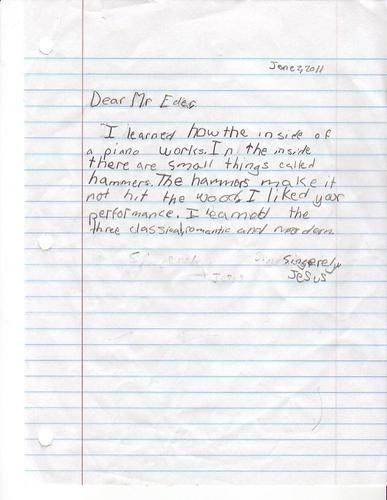 June 2, 2011
Dear Mr Edes
I learned how the inside of
a piano works. In the inside
there are small things called
hammers. The hammers make it
not hit the wood. I liked your
performance. I learnod the
three classical, romantic and mordern
Singerely
Jesus